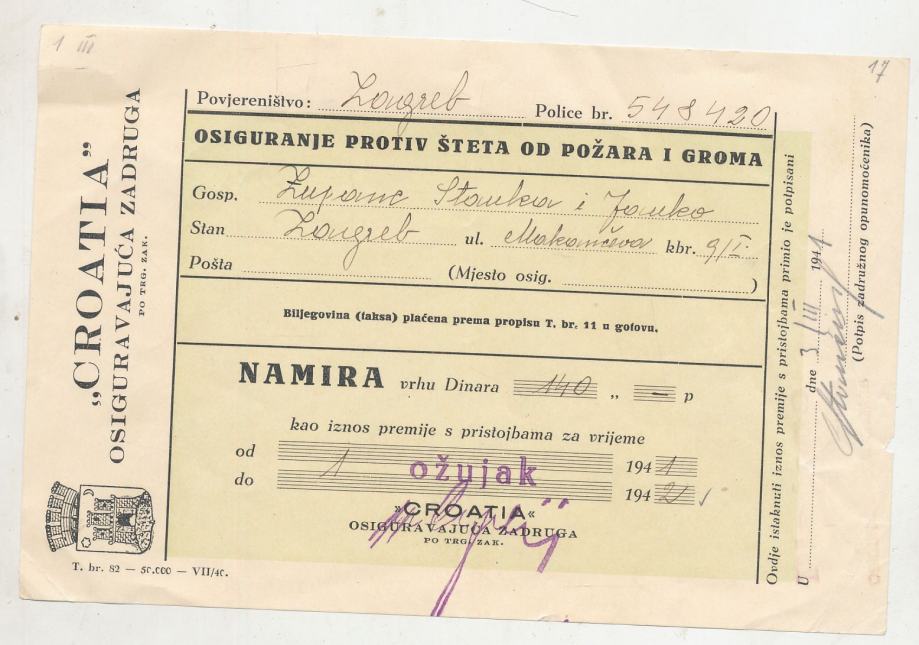 1 III
17
„CROATIA”
OSIGURAVAJUĆA ZADRUGA
PO TRG. ZAK.
Povjereništvo: Zagreb Police br. 548420
OSIGURANJE PROTIV ŠTETA OD POŽARA I GROMA
Gosp. Zupanc Stanka i Janko
Stan Zagreb ul. Makančeva kbr. 9/I
Pošta (Mjesto osig. )
Biljegovina (taksa) plaćena prema propisu T. br. 11 u gotovu.
NAMIRA vrhu Dinara 140 „ — p
kao iznos premije s pristojbama za vrijeme
od 1941
1 ožujak
do 1942
»CROATIA«
OSIGURAVAJUĆA ZADRUGA
PO TRG. ZAK.
T. br. 82 — 50.000 — VII/40.
Ovdje istaknuti iznos premije s pristojbama primio je potpisani
U dne 3/III 1941
(Potpis zadružnog opunomoćenika)